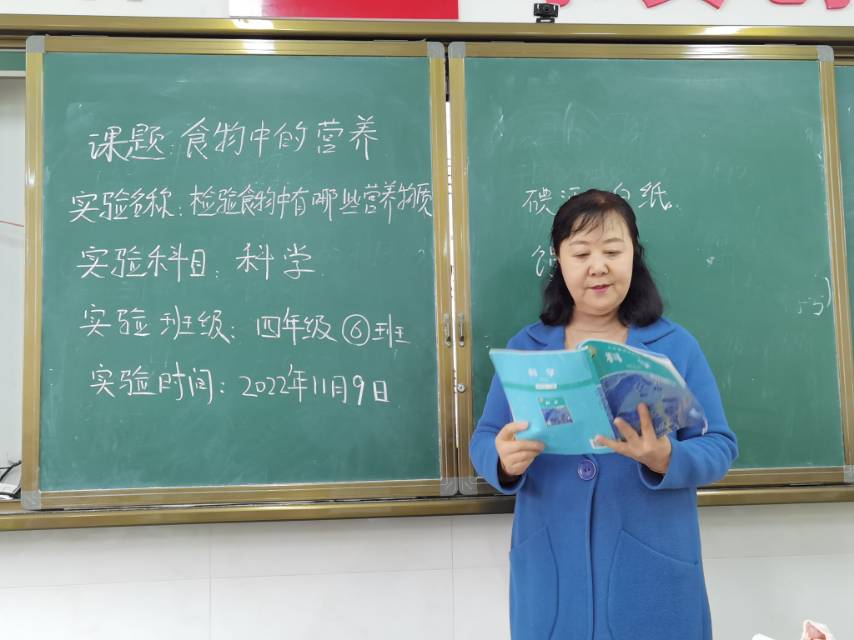 课题:食物中的营养
实验名称:检验食物中有哪些营养物质
实验科目:科学
实验班级:四年级⑥班
实验时间:2022年11月9日
碘 白纸
科学
科学